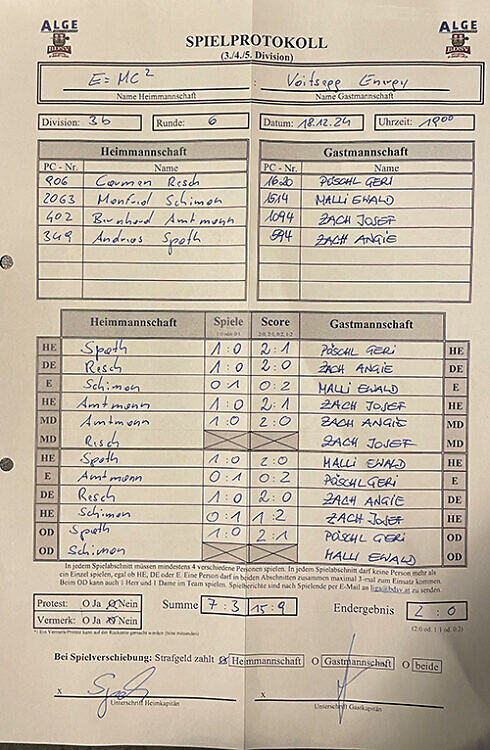 ALGE ALGE
BDSV BDSV
SPIELPROTOKOLL
(3./4./5. Division)
E=MC² : Voitsegg Energy
Name Heimmannschaft Name Gastmannschaft
Division: 3b Runde: 6 Datum: 18.12.24 Uhrzeit: 19⁰⁰
Heimmannschaft Gastmannschaft
PC - Nr. Name PC - Nr. Name
906 Carmen Resch 1620 PÖSCHL GERI
2063 Manfred Schimon 1614 MALLI EWALD
402 Bernhard Amtmann 1094 ZACH JOSEF
349 Andreas Spath 594 ZACH ANGIE
Heimmannschaft Spiele Score Gastmannschaft
HE Spath 1:0 2:1 PÖSCHL GERI HE
DE Resch 1:0 2:0 ZACH ANGIE DE
E Schimon 0:1 0:2 MALLI EWALD E
HE Amtmann 1:0 2:1 ZACH JOSEF HE
MD Amtmann 1:0 2:0 ZACH ANGIE MD
MD Risch ZACH JOSEF MD
HE Spath 1:0 2:0 MALLI EWALD HE
E Amtmann 0:1 0:2 PÖSCHL GERI E
DE Resch 1:0 2:0 ZACH ANGIE DE
HE Schimon 0:1 1:2 ZACH JOSEF HE
OD Spath 1:0 2:1 PÖSCHL GERI OD
OD Schimon MALLI EWALD OD
In jedem Spielabschnitt müssen mindestens 4 verschiedene Personen spielen. In jedem Spielabschnitt darf keine Person mehr als
ein Einzel spielen, egal ob HE, DE oder E. Eine Person darf in beiden Abschnitten zusammen maximal 3-mal zum Einsatz kommen.
Beim OD kann auch 1 Herr und 1 Dame im Team spielen. Spielberichte sind nach Spielende per E-Mail an liga@bdsv.at zu senden.
Protest: O Ja O Nein Summe 7:3 15:9 Endergebnis 2:0
Vermerk: O Ja O Nein (2:0 od. 1:1 od. 0:2)
Bei Spielverschiebung: Strafgeld zahlt O Heimmannschaft O Gastmannschaft O beide
x x
Unterschrift Heimkapitän Unterschrift Gastkapitän